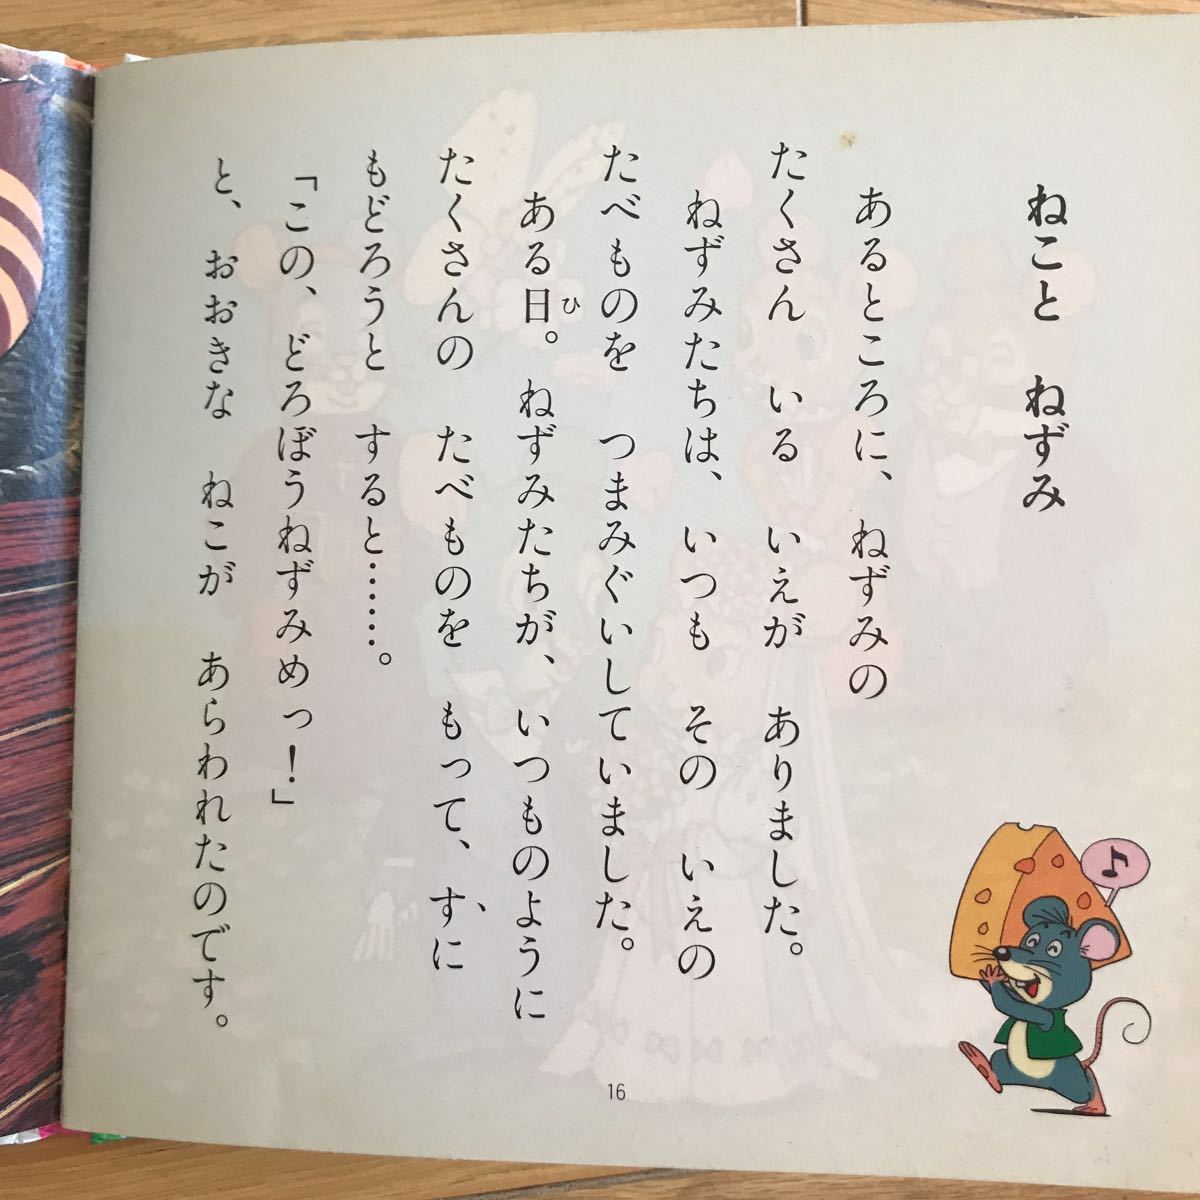 ねこと　ねずみ
あるところに、ねずみの
たくさん　いる　いえが　ありました。
ねずみたちは、いつも　その　いえの
たべものを　つまみぐいしていました。
ある日。ねずみたちが、いつものように
ひ
たくさんの　たべものを　もって、すに
もどろうと　すると……。
「この、どろぼうねずみめっ！」
と、おおきな　ねこが　あらわれたのです。
16